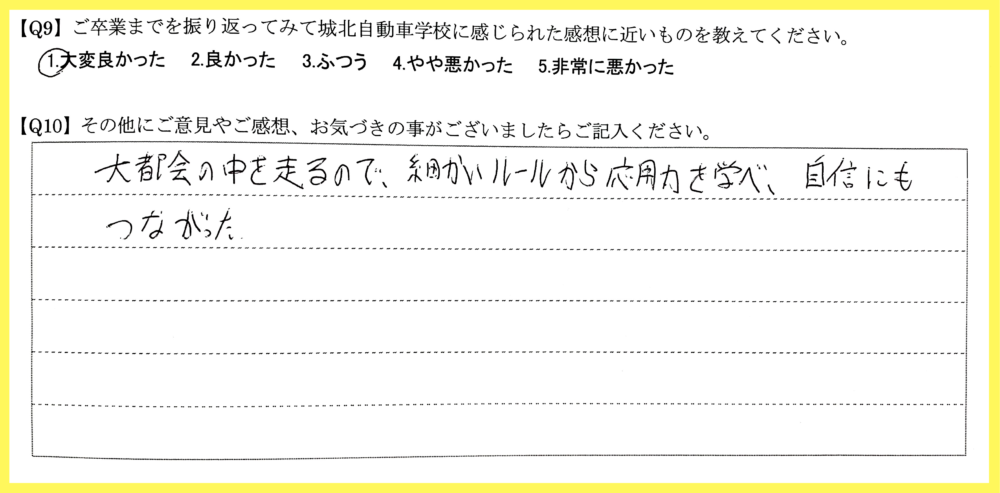 【Q9】ご卒業までを振り返ってみて城北自動車学校に感じられた感想に近いものを教えてください。
1.大変良かった 2.良かった 3.ふつう 4.やや悪かった 5.非常に悪かった
【Q10】その他にご意見やご感想、お気づきの事がございましたらご記入ください。
大都会の中を走るので、細かいルールから応用力を学べ、自信にも
つながった